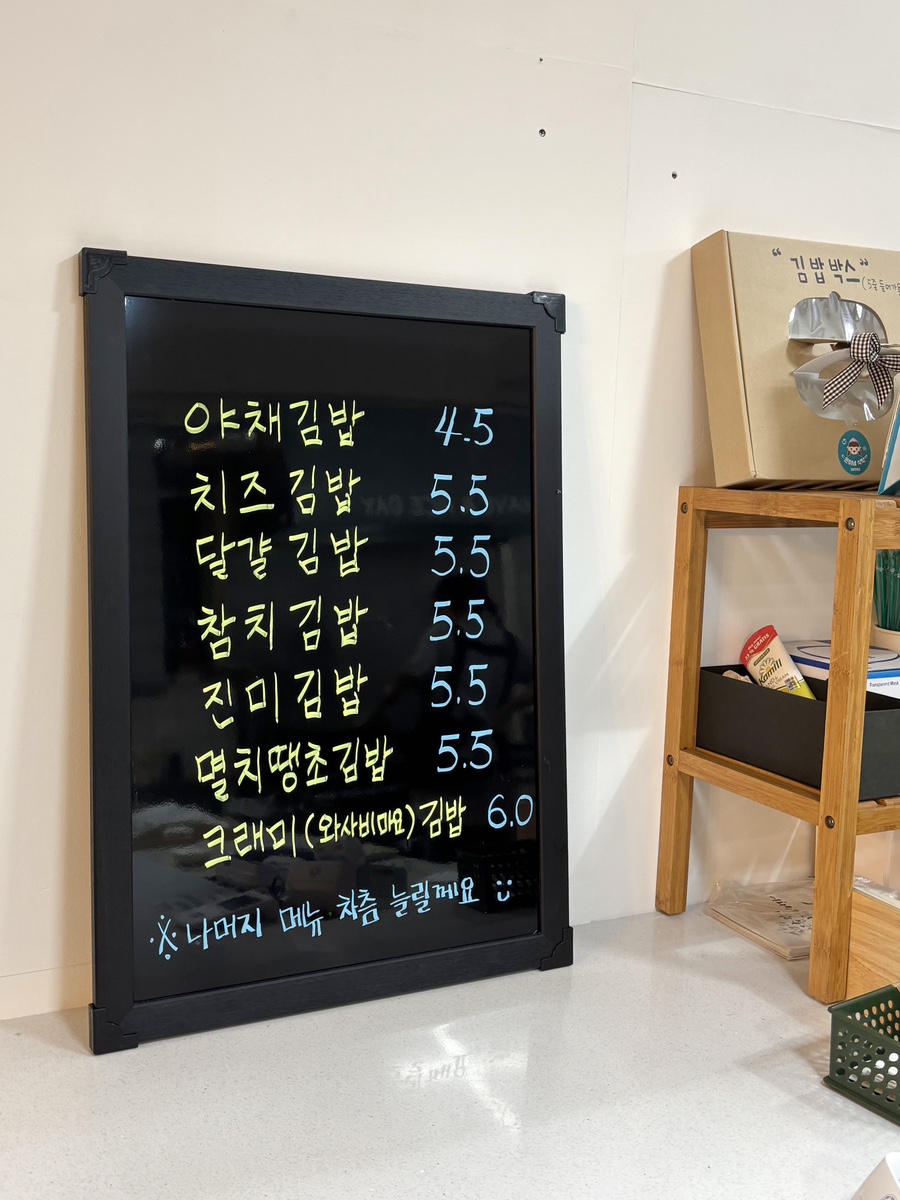 야채김밥 4.5
치즈김밥 5.5
달걀김밥 5.5
참치김밥 5.5
진미김밥 5.5
멸치땡초김밥 5.5
크래미(와사비마요)김밥 6.0
※나머지 메뉴 차츰 늘릴께요 :)
"김밥박스"
(5줄 들어가
Kamill
Transparent Mask